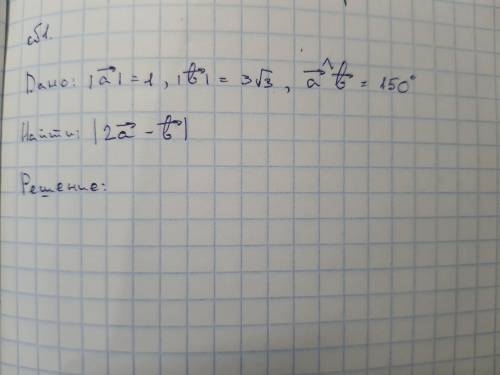 №1.
Дано: |a⃗| = 1, |b⃗| = 3√3, a⃗ ^ b⃗ = 150°
Найти: |2a⃗ - b⃗|
Решение: